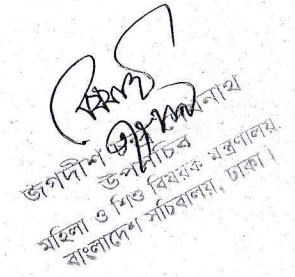 জগদীশ নাথ
উপসচিব
মহিলা ও শিশু বিষয়ক মন্ত্রণালয়
বাংলাদেশ সচিবালয়, ঢাকা।